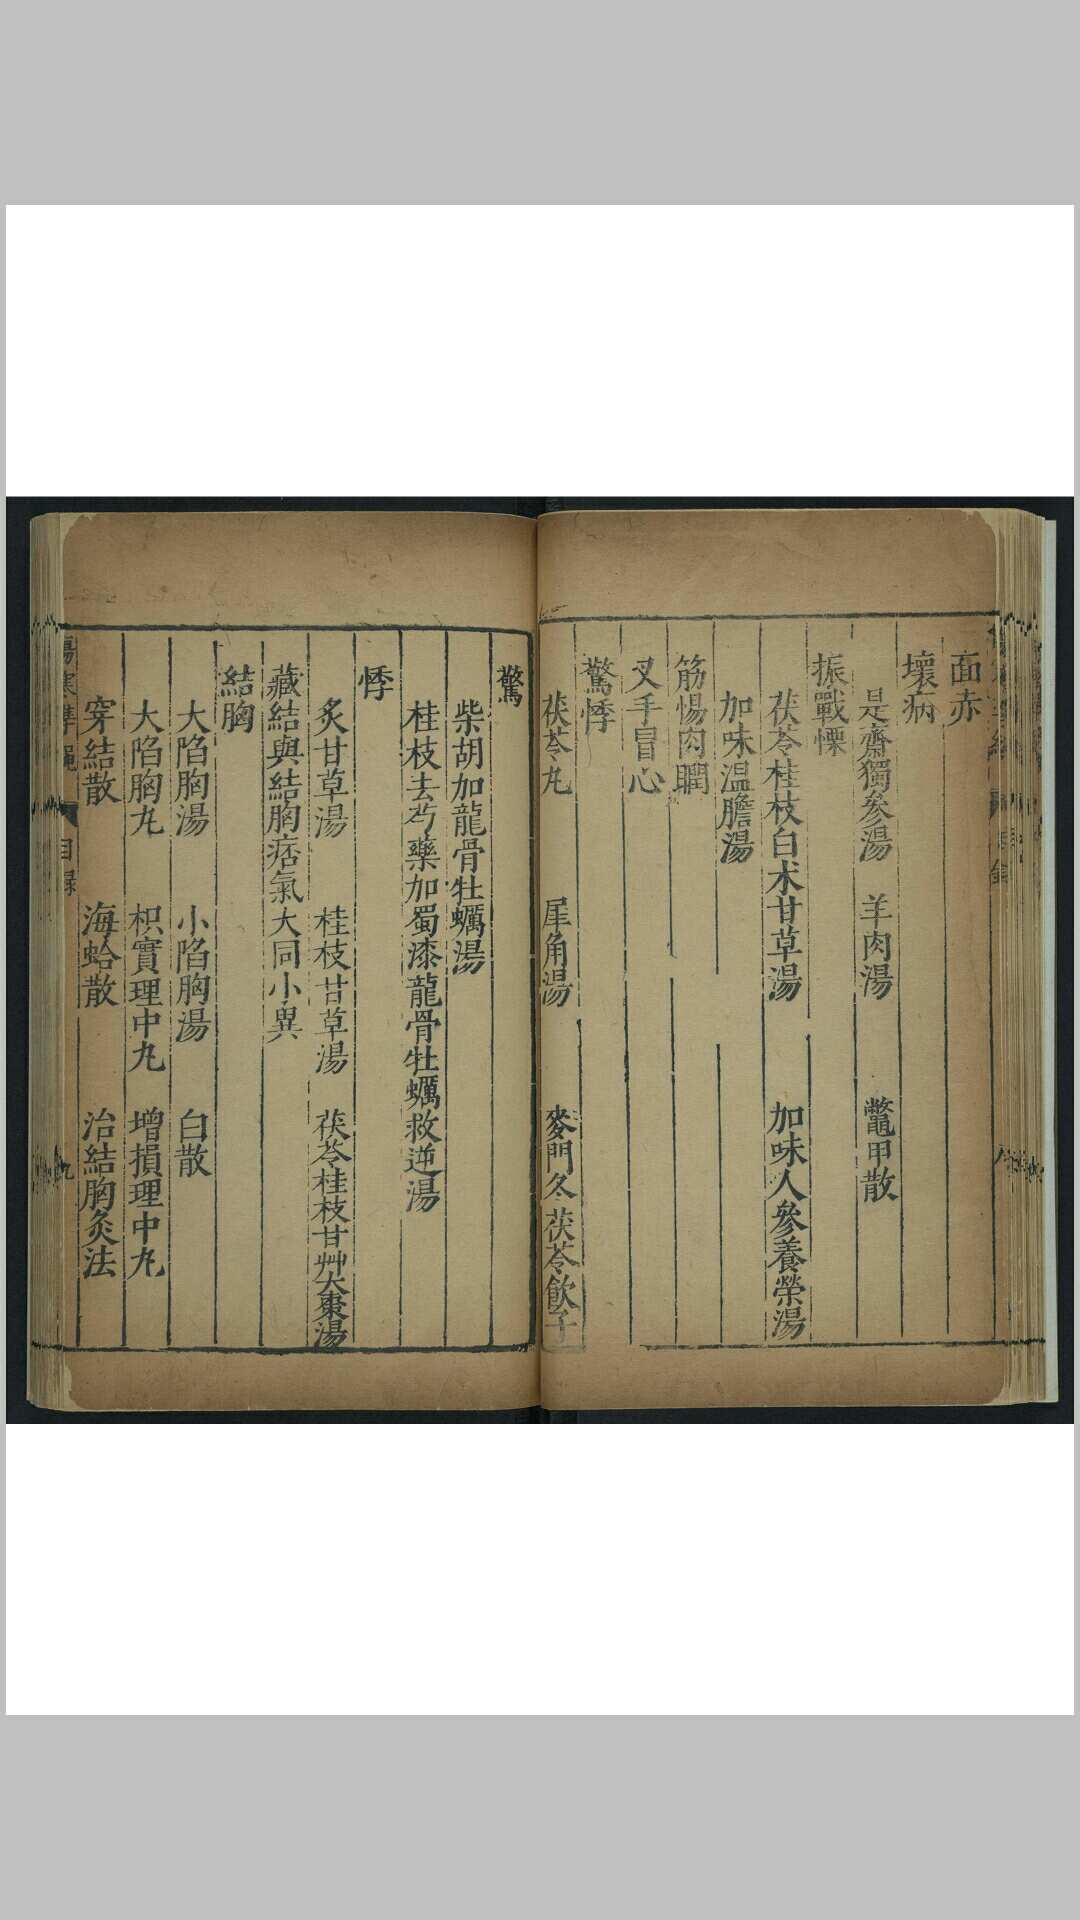 面赤
壞病
是齋獨參湯　羊肉湯　鼈甲散
振戰慄
茯苓桂枝白术甘草湯　加味人參養榮湯
加味温膽湯
筋惕肉瞤
叉手冒心
驚悸
茯苓丸　犀角湯　麥門冬茯苓飲子
驚
柴胡加龍骨牡蠣湯
桂枝去芍藥加蜀漆龍骨牡蠣救逆湯
悸
炙甘草湯　桂枝甘草湯　茯苓桂枝甘艸大棗湯
藏結與結胸痞氣大同小異
結胸
大陷胸湯　小陷胸湯　白散
大陷胸丸　枳實理中丸　增損理中丸
穿結散　海蛤散　治結胸灸法
傷寒準繩　目録　九